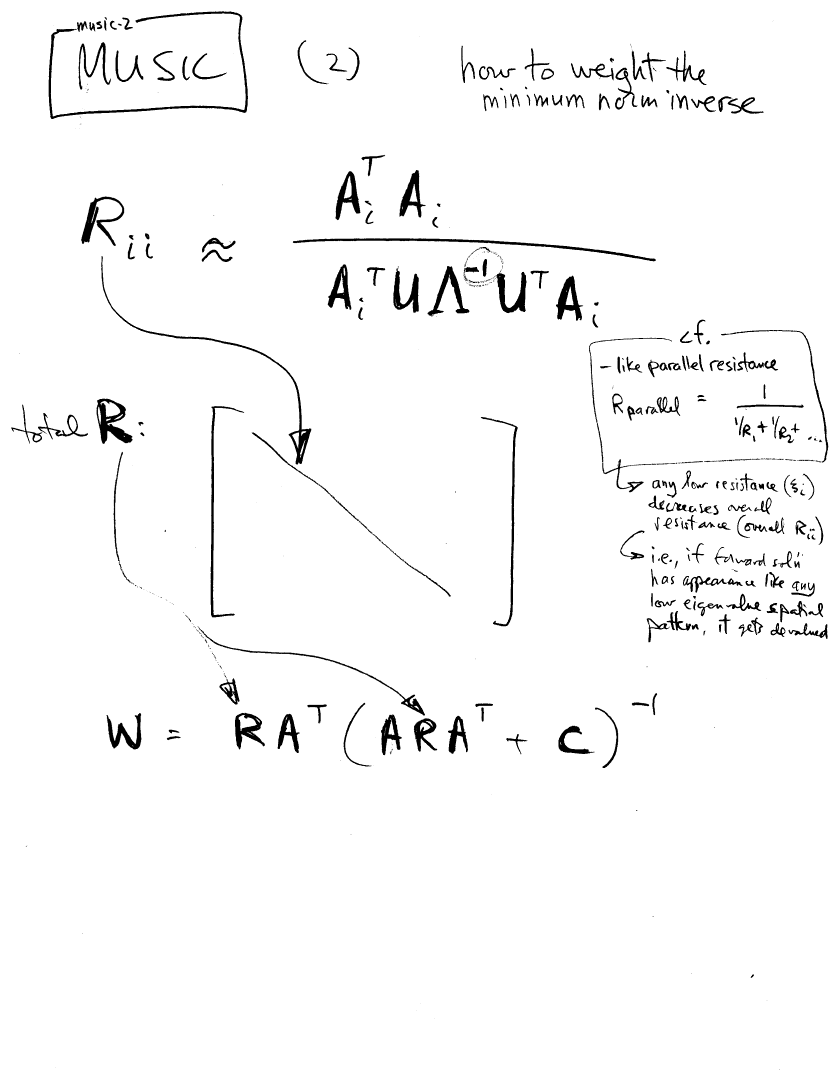 music-2
MUSIC (2)
how to weight the
minimum norm inverse
R_ii ≈ A_i^T A_i / A_i^T U Λ^-1 U^T A_i
cf.
- like parallel resistance
R parallel = 1 / 1/R_1 + 1/R_2 + ...
total R:
any low resistance (ξ_i)
decreases overall
resistance (overall R_ii)
i.e., if forward sol'n
has appearance like any
low eigenvalue spatial
pattern, it gets devalued
W = R A^T (A R A^T + C)^-1